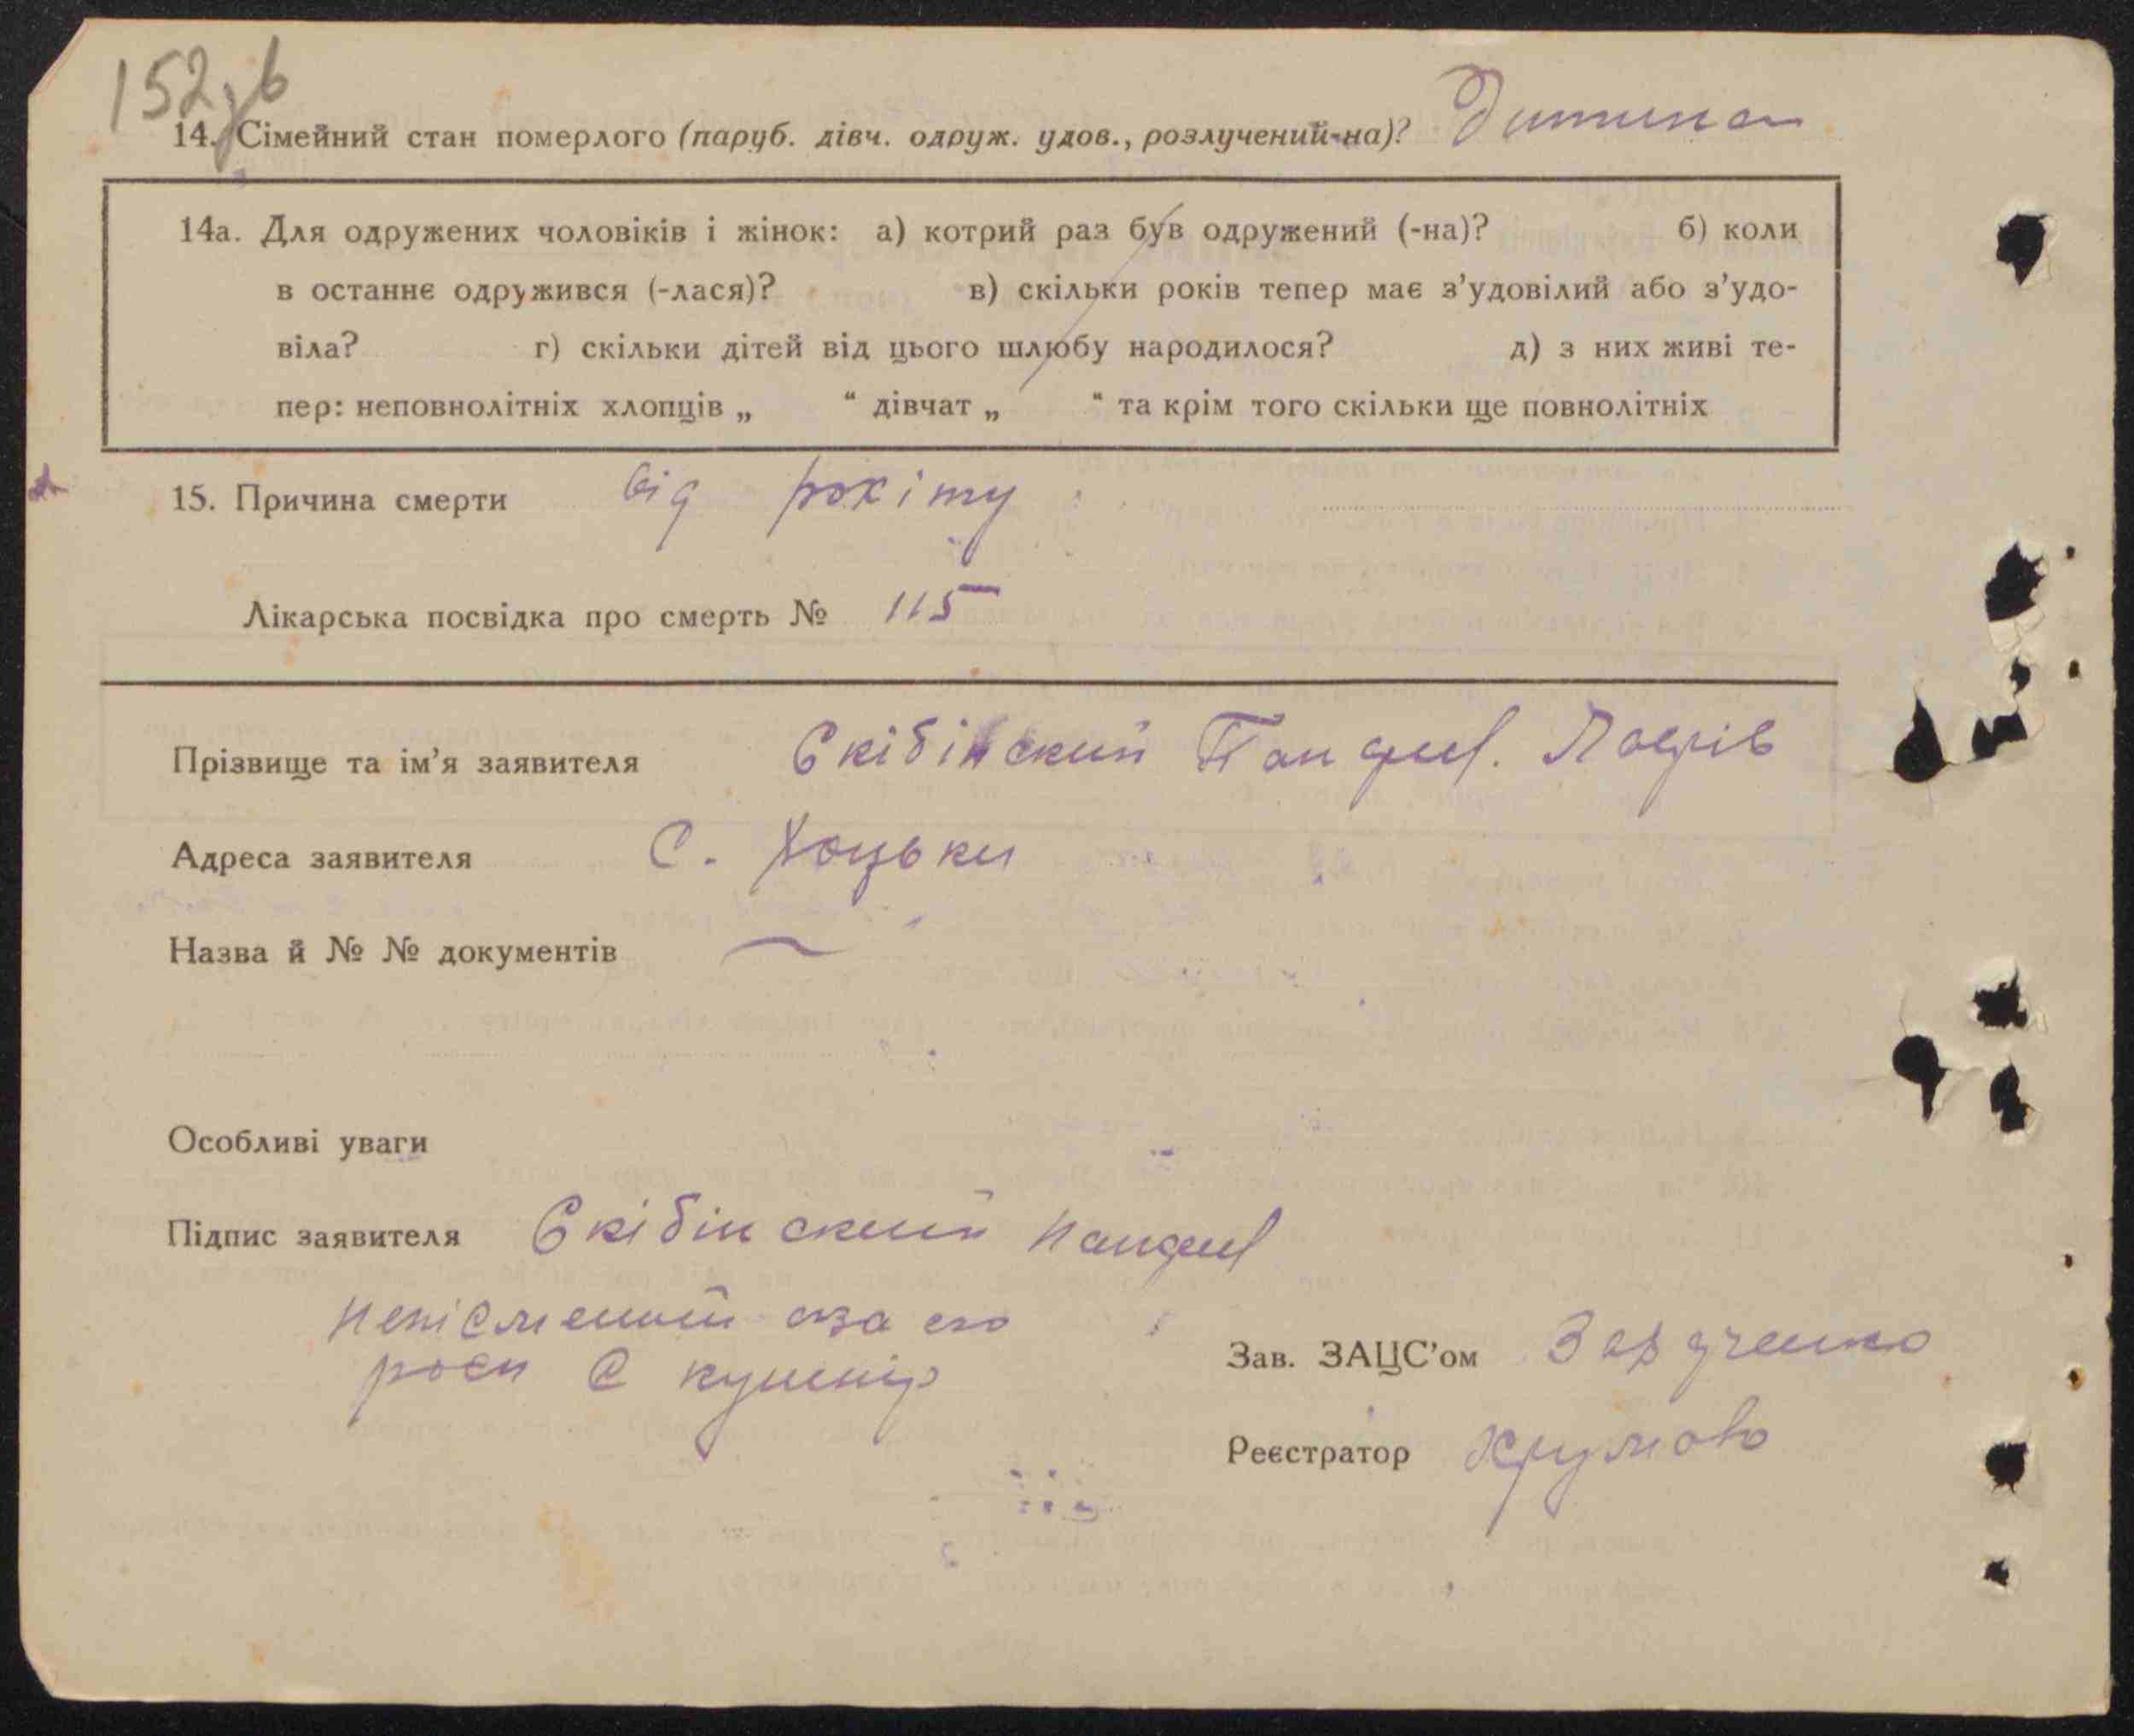 152зв
14. Сімейний стан померлого (паруб. дівч. одруж. удов., розлучений-на)? Дитина
14а. Для одружених чоловіків і жінок: а) котрий раз був одружений (-на)? б) коли
в останнє одружився (-лася)? в) скільки років тепер має з’удовілий або з’удо-
віла? г) скільки дітей від цього шлюбу народилося? д) з них живі те-
пер: неповнолітніх хлопців „ “ дівчат „ “ та крім того скільки ще повнолітніх
15. Причина смерти від рохіту
Лікарська посвідка про смерть № 115
Прізвище та ім’я заявителя Скібінский Панфил.
Адреса заявителя С. Хоцьки
Назва й № № документів
Особливі уваги
Підпис заявителя Скібінский Панфил
непісмений аза его
роспи С кушнір
Зав. ЗАЦС’ом
Реєстратор